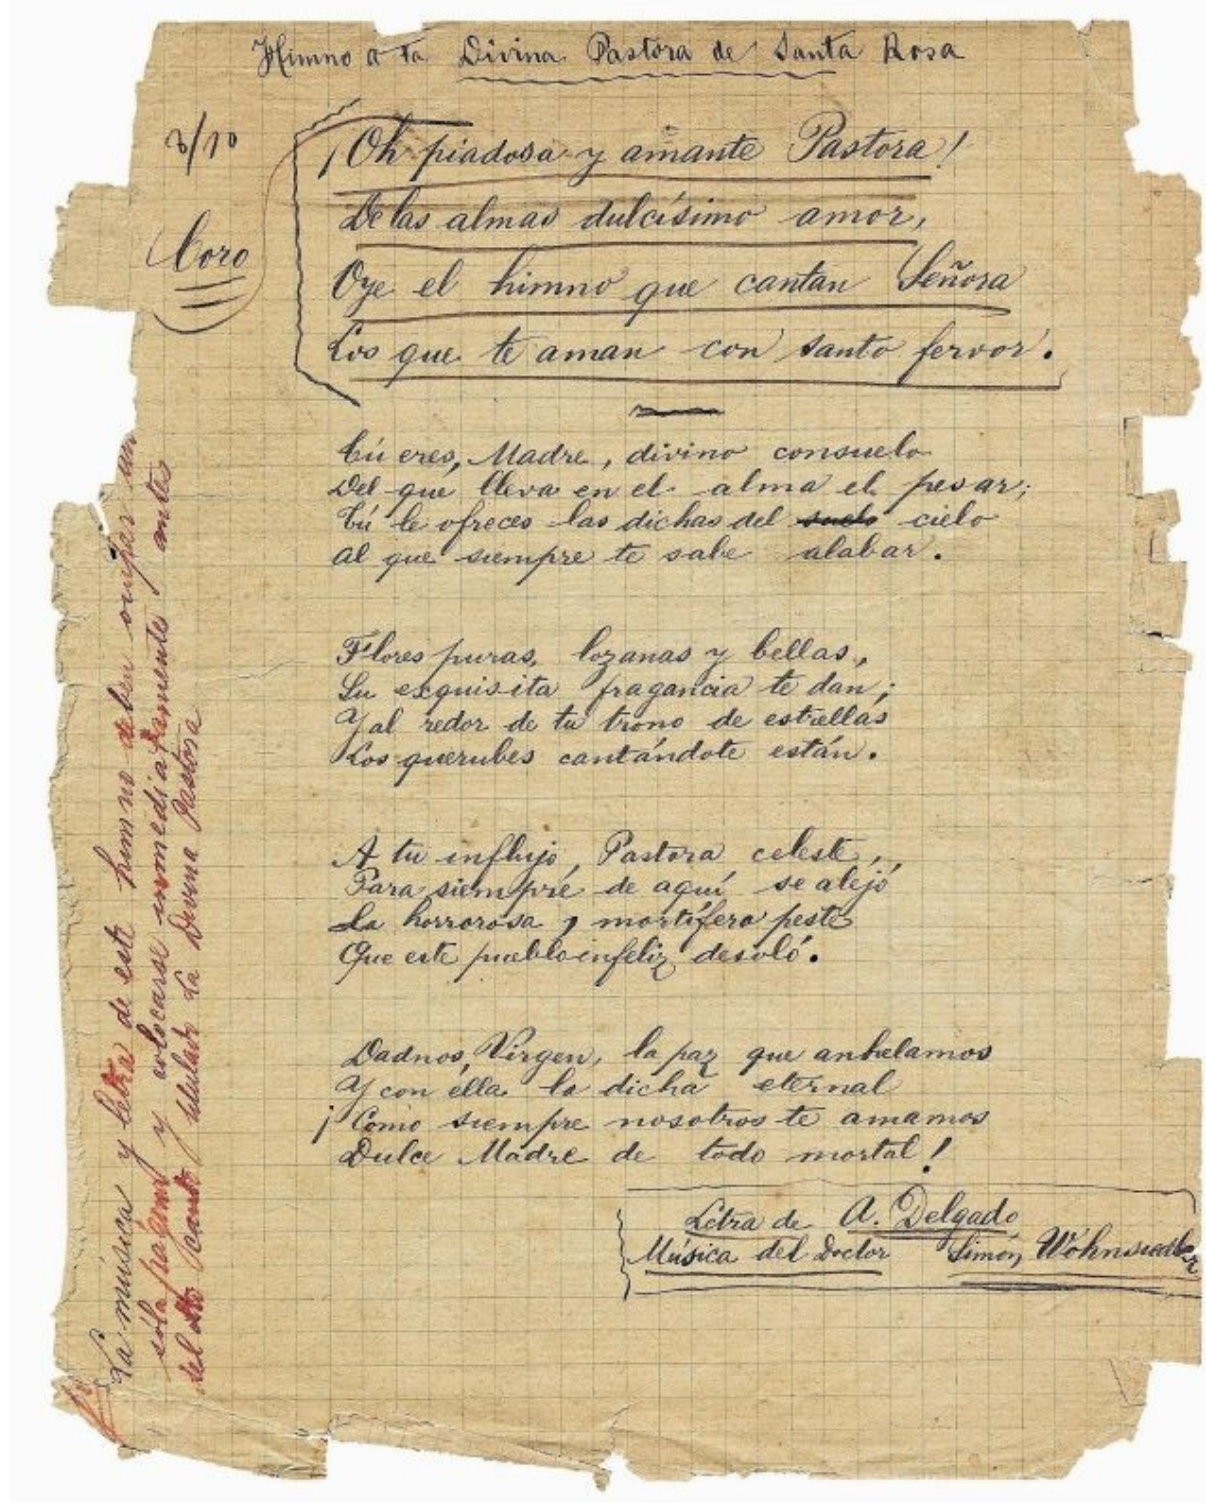 Himno a la Divina Pastora de Santa Rosa
3/10
Coro
¡Oh piadosa y amante Pastora!
De las almas dulcísimo amor,
Oye el himno que cantan Señora
Los que te aman con santo fervor.
Tú eres, Madre, divino consuelo
Del que lleva en el alma el pesar;
Tú le ofreces las dichas del suelo cielo
Al que siempre te sabe alabar.
Flores puras, lozanas y bellas,
Su exquisita fragancia te dan;
Y al redor de tu trono de estrellas
Los querubes cantándote están.
A tu influjo, Pastora celeste,
Para siempre de aquí se alejó
La horrorosa y mortífera peste
Que este pueblo infeliz desoló.
Dadnos, Virgen, la paz que anhelamos
Y con ella la dicha eternal
¡Como siempre nosotros te amamos
Dulce Madre de todo mortal!
Letra de A. Delgado
Música del Doctor Simón Wohnsiedler
La música y letra de este himno deben ocupar una
sola página y colocarse inmediatamente antes
del canto titulado La Divina Pastora